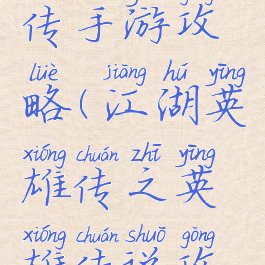 传手游攻
lüè jiāng hú yīng
略(江湖英
xióng chuán zhī yīng
雄传之英
xióng chuán shuō gōng
雄传说攻